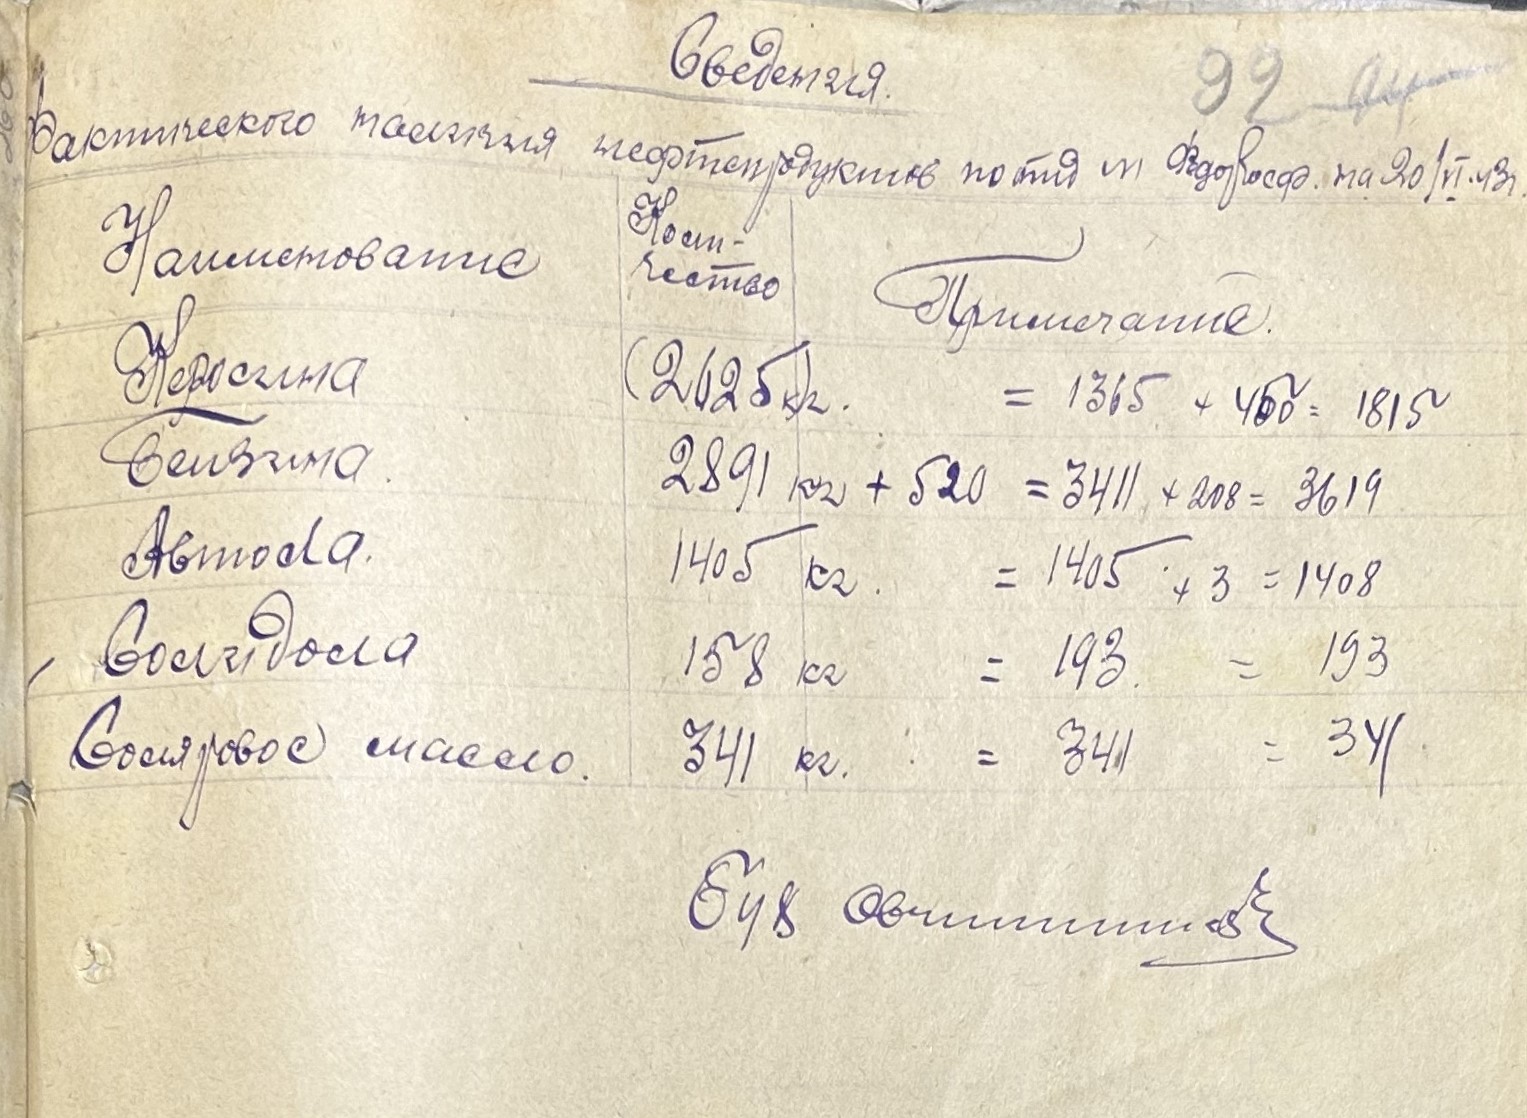 Сведения.
92
Фактического наличия нефтепродуктов по на 20/VI.43г.
Наименование Коли-чество Примечание.
Керосина (2625 кг. = 1365 + 450 = 1815
Бензина. 2891 кг + 520 = 3411 + 208 = 3619
Автола. 1405 кг. = 1405 + 3 = 1408
Солидола 158 кг = 193 = 193
Соляровое массло. 341 кг. = 341 = 341
Бух Овчинников